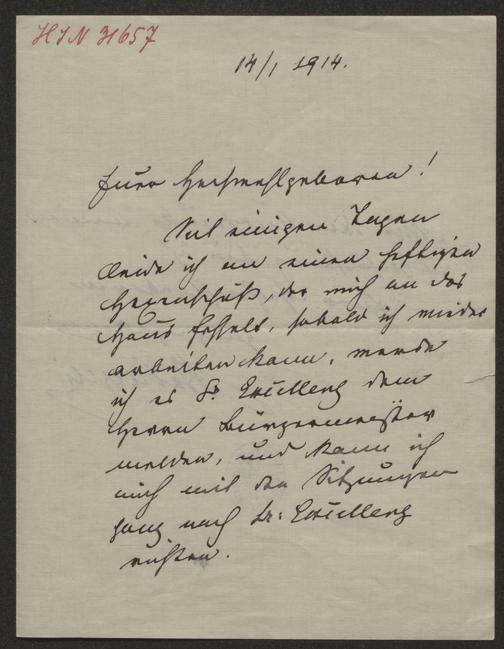 HIN 31657
14/1 1914.
Euer Hochwohlgeboren!
Seit einigen Tagen
leide ich an einen heftigen
Hexenschuß, der mich an das
Haus fesselt, sobald ich wieder
arbeiten kann, werde
ich es Sr. Excellenz dem
Herrn Bürgermeister
melden, und kann ich
mich mit den Sitzungen
ganz nach Sr: Excellenz
richten.